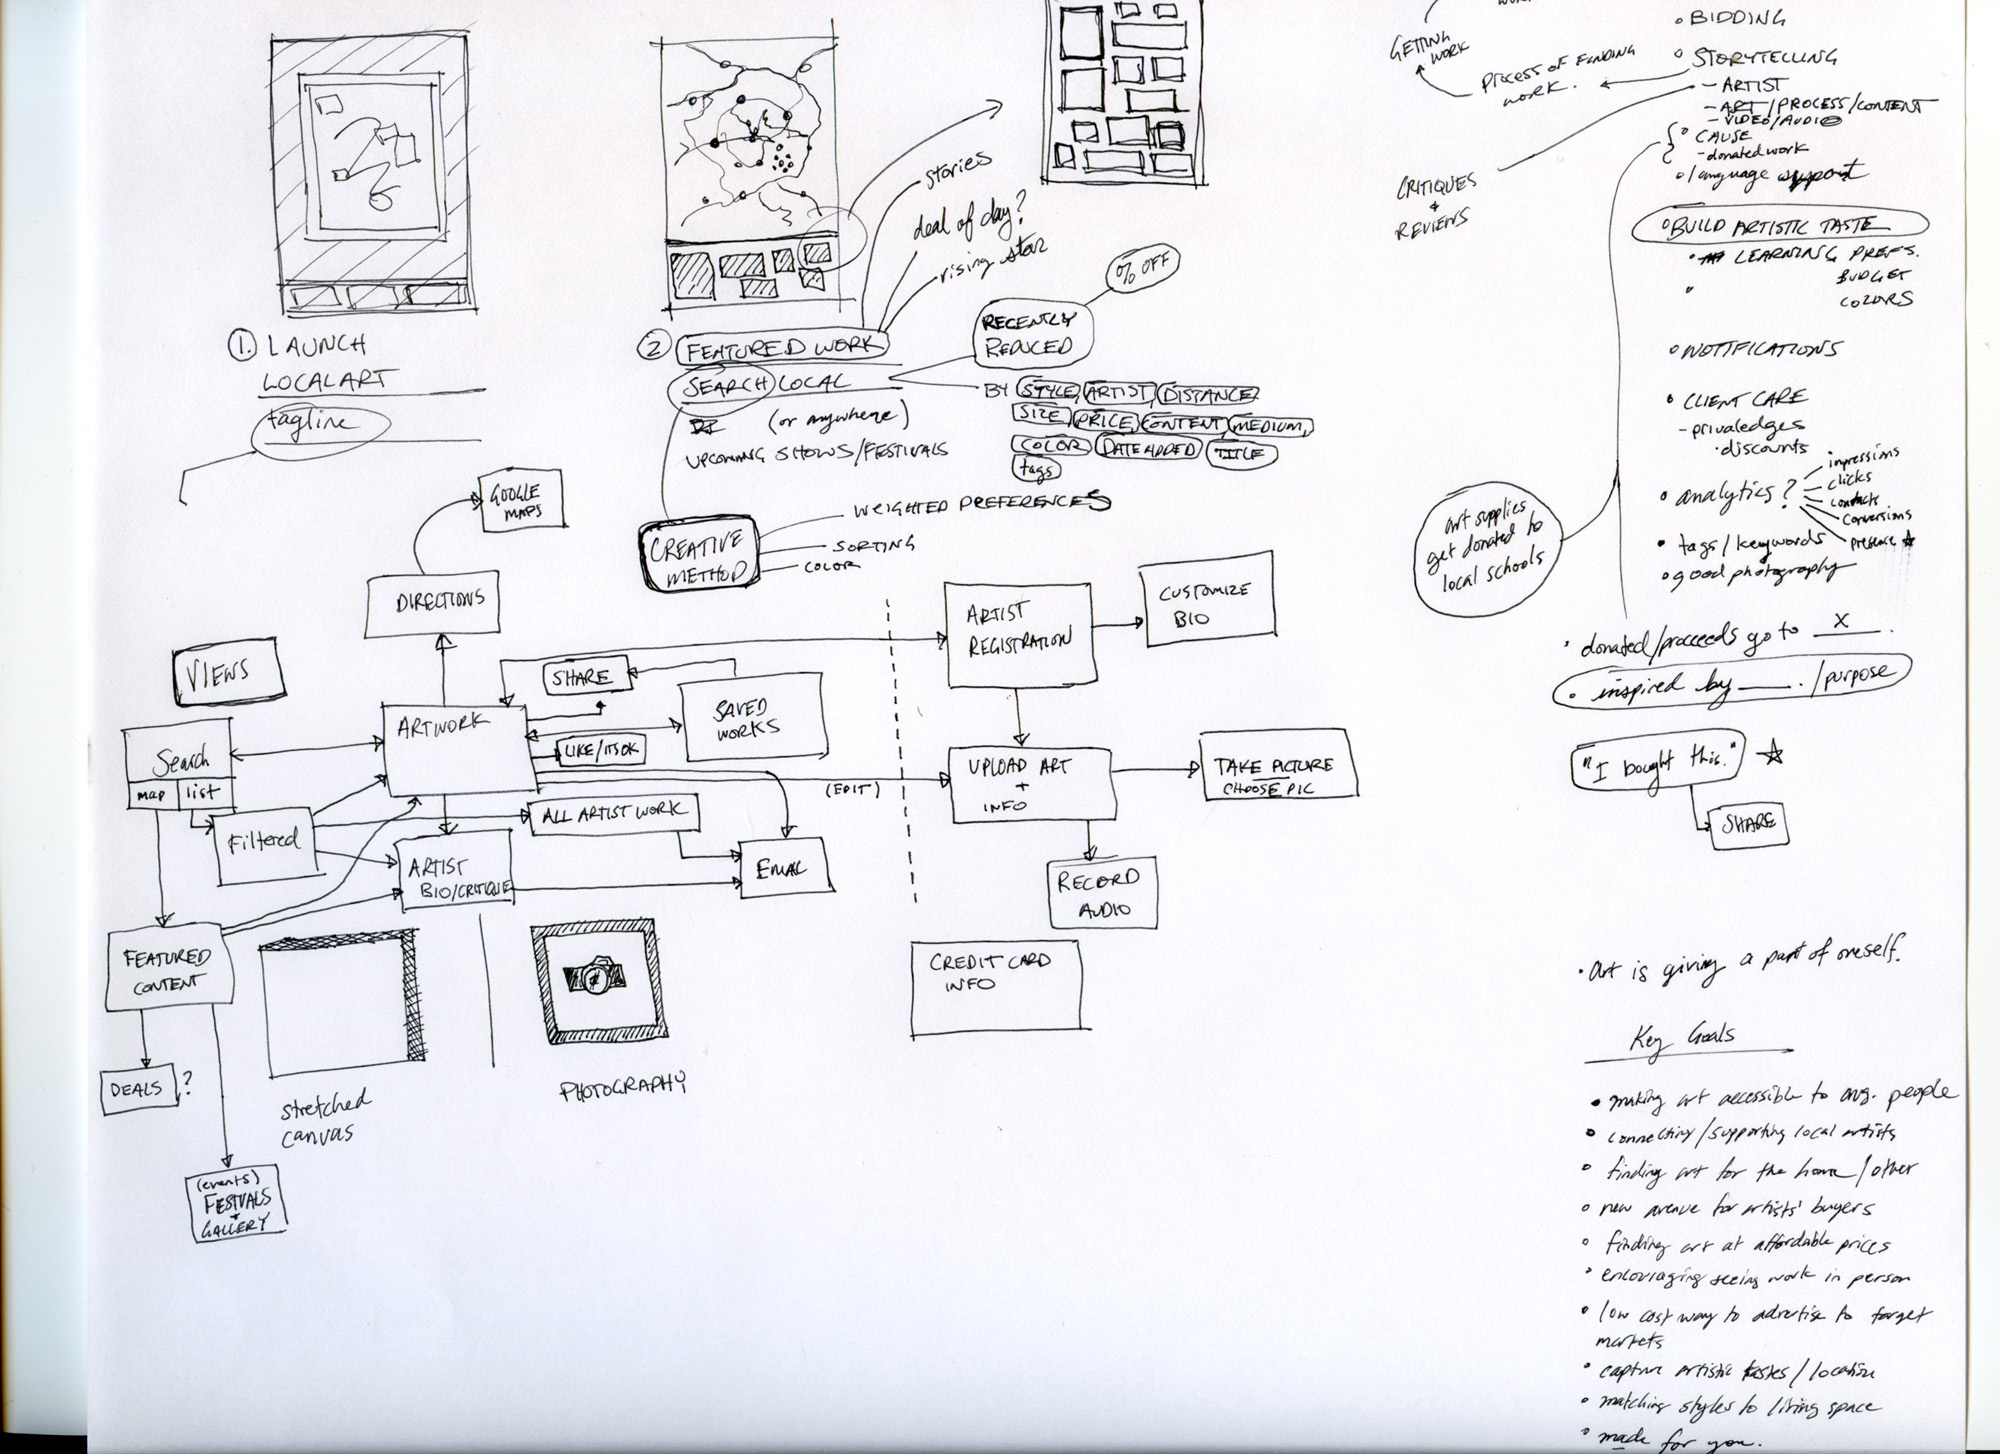 GETTING
WORK
PROCESS OF FINDING
WORK.
CRITIQUES
+
REVIEWS
◦ BIDDING
◦ STORYTELLING
- ARTIST
- ART/PROCESS/CONTENT
- VIDEO/AUDIO
◦ CAUSE
- donated work
◦ language support
◦ BUILD ARTISTIC TASTE
• LEARNING PREFS.
BUDGET
COLORS
◦ NOTIFICATIONS
• CLIENT CARE
- priveledges
• discounts
◦ analytics?
impressions
clicks
contacts
conversions
presence ★
• tags/keywords
◦ good photography
art supplies
get donated to
local schools
• donated/proceeds go to X.
• inspired by ____. /purpose
"I bought this."
SHARE
• Art is giving a part of oneself.
Key Goals
• making art accessible to avg. people
• connecting/supporting local artists
• finding art for the home/other
◦ new avenue for artists' buyers
◦ finding art at affordable prices
• encouraging seeing work in person
• low cost way to advertise to target
markets
• capture artistic tastes/location
• matching styles to living space
• made for you.
1. LAUNCH
LOCALART
tagline
2 FEATURED WORK
stories
deal of day?
rising star
% OFF
RECENTLY
REDUCED
SEARCH LOCAL
(or anywhere)
UPCOMING SHOWS/FESTIVALS
BY STYLE, ARTIST, DISTANCE
SIZE, PRICE, CONTENT, MEDIUM,
COLOR DATE ADDED TITLE
tags
CREATIVE
METHOD
WEIGHTED PREFERENCES
SORTING
COLOR
GOOGLE
MAPS
DIRECTIONS
VIEWS
Search
map list
Filtered
ARTWORK
SHARE
SAVED
WORKS
LIKE/ITS OK
ALL ARTIST WORK
ARTIST
BIO/CRITIQUE
EMAIL
(EDIT)
ARTIST
REGISTRATION
CUSTOMIZE
BIO
UPLOAD ART
+
INFO
TAKE PICTURE
CHOOSE PIC
RECORD
AUDIO
CREDIT CARD
INFO
FEATURED
CONTENT
DEALS ?
(events)
FESTIVALS
+
GALLERY
stretched
canvas
PHOTOGRAPHY